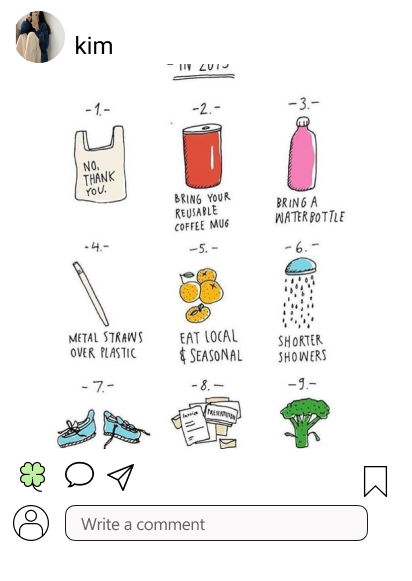 kim
- IN
-1.-
-2.-
-3.-
NO,
THANK
YOU.
BRING YOUR
REUSABLE
COFFEE MUG
BRING A
WATERBOTTLE
-4.-
-5.-
-6.-
METAL STRAWS
OVER PLASTIC
EAT LOCAL
& SEASONAL
SHORTER
SHOWERS
-7.-
-8.-
-9.-
Invoice
PRESENTATION
Write a comment